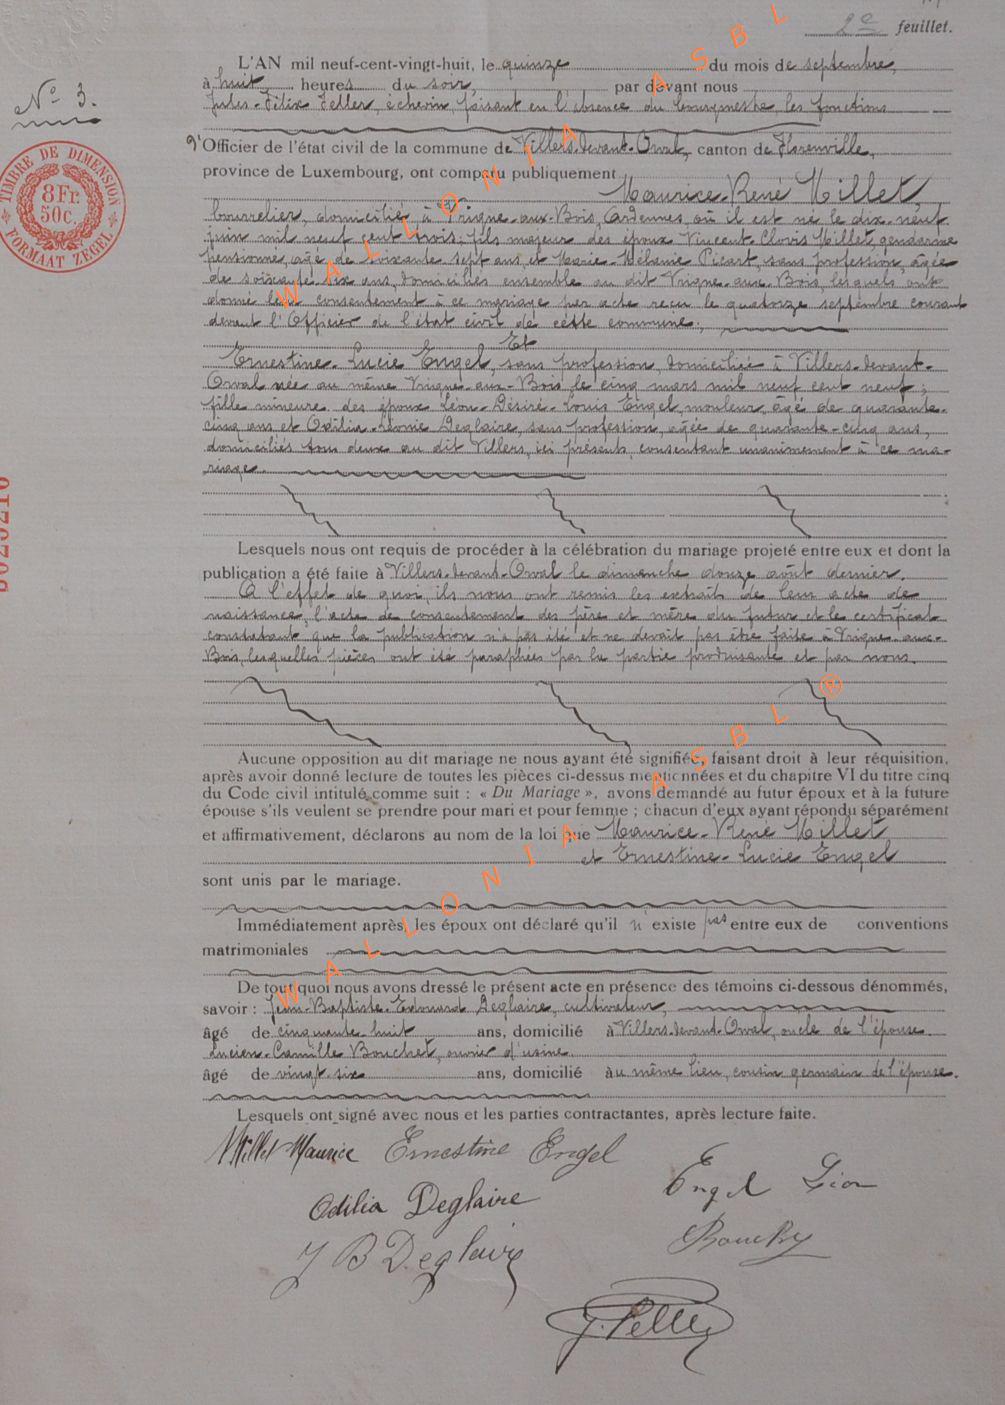 2e feuillet.
L'AN mil neuf-cent-vingt-huit, le quinze du mois de septembre,
à huit heures du soir, par devant nous
Jules-Félix Feller, échevin, faisant en l'absence du bourgmestre, les fonctions
N° 3.
d'Officier de l'état civil de la commune de Villers-devant-Orval, canton de Florenville,
province de Luxembourg, ont comparu publiquement Maurice-René Millet,
bourrelier, domicilié à Vrigne-aux-Bois, Ardennes, où il est né le dix-neuf
juin mil neuf cent trois, fils majeur des époux Vincent-Clovis Millet, gendarme
pensionné, âgé de soixante sept ans, et Marie-Mélanie Picart, sans profession, âgée
de soixante-six ans, domiciliés ensemble au dit Vrigne-aux-Bois, lesquels ont
donné leur consentement à ce mariage par acte reçu le quatorze septembre courant
devant l'Officier de l'état civil de cette commune;
Et
Ernestine-Lucie Engel, sans profession, domiciliée à Villers-devant-
Orval née au même Vrigne-aux-Bois le cinq mars mil neuf cent neuf;
fille mineure des époux Léon-Désiré-Louis Engel, mouleur, âgé de quarante-
cinq ans et Odilia-Léonie Deglaire, sans profession, âgée de quarante-cinq ans,
domiciliés tous deux au dit Villers, ici présents, consentant unanimement à ce ma-
riage.
Lesquels nous ont requis de procéder à la célébration du mariage projeté entre eux et dont la
publication a été faite à Villers-devant-Orval le dimanche douze août dernier.
A l'effet de quoi, ils nous ont remis les extraits de leur acte de
naissance, l'acte de consentement des père et mère du futur et le certificat
constatant que la publication n'a pas été et ne devait pas être faite à Vrigne-aux-
Bois, lesquelles pièces ont été paraphées par la partie produisante et par nous.
Aucune opposition au dit mariage ne nous ayant été signifiée, faisant droit à leur réquisition,
après avoir donné lecture de toutes les pièces ci-dessus mentionnées et du chapitre VI du titre cinq
du Code civil intitulé comme suit : « Du Mariage », avons demandé au futur époux et à la future
épouse s'ils veulent se prendre pour mari et pour femme ; chacun d'eux ayant répondu séparément
et affirmativement, déclarons au nom de la loi que Maurice-René Millet
et Ernestine-Lucie Engel
sont unis par le mariage.
Immédiatement après, les époux ont déclaré qu'il n'existe pas entre eux de conventions
matrimoniales
De tout quoi nous avons dressé le présent acte en présence des témoins ci-dessous dénommés,
savoir : Jean-Baptiste-Edouard Deglaire, cultivateur,
âgé de cinquante huit ans, domicilié à Villers-devant-Orval, oncle de l'épouse.
Lucien-Camille Bouchet, ouvrier d'usine
âgé de vingt-six ans, domicilié au même lieu, cousin germain de l'épouse.
Lesquels ont signé avec nous et les parties contractantes, après lecture faite.
Millet Maurice Ernestine Engel
Engel Léon
Odilia Deglaire
J B Deglaire
J. Feller
TIMBRE DE DIMENSION
8 Fr. 50 c.
FORMAAT ZEGEL
WALLONIA ASBL
WALLONIA ASBL ®